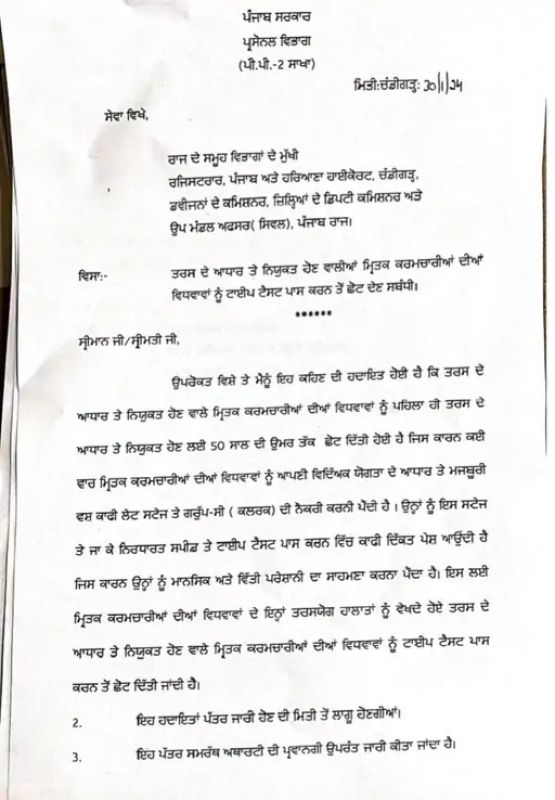 ਪੰਜਾਬ ਸਰਕਾਰ
ਪ੍ਰਸੋਨਲ ਵਿਭਾਗ
(ਪੀ.ਪੀ.-2 ਸਾਖਾ)
ਮਿਤੀ:ਚੰਡੀਗੜ੍ਹ: 30/1/24
ਸੇਵਾ ਵਿਖੇ,
ਰਾਜ ਦੇ ਸਮੂਹ ਵਿਭਾਗਾਂ ਦੇ ਮੁੱਖੀ
ਰਜਿਸਟਰਾਰ, ਪੰਜਾਬ ਅਤੇ ਹਰਿਆਣਾ ਹਾਈਕੋਰਟ, ਚੰਡੀਗੜ੍ਹ,
ਡਵੀਜਨਾਂ ਦੇ ਕਮਿਸ਼ਨਰ, ਜ਼ਿਲ੍ਹਿਆਂ ਦੇ ਡਿਪਟੀ ਕਮਿਸ਼ਨਰ ਅਤੇ
ਉਪ ਮੰਡਲ ਅਫਸਰ( ਸਿਵਲ), ਪੰਜਾਬ ਰਾਜ।
ਵਿਸਾ:- ਤਰਸ ਦੇ ਆਧਾਰ ਤੇ ਨਿਯੁਕਤ ਹੋਣ ਵਾਲੀਆਂ ਮ੍ਰਿਤਕ ਕਰਮਚਾਰੀਆਂ ਦੀਆਂ
ਵਿਧਵਾਵਾਂ ਨੂੰ ਟਾਈਪ ਟੈਸਟ ਪਾਸ ਕਰਨ ਤੋਂ ਛੋਟ ਦੇਣ ਸਬੰਧੀ।
******
ਸ੍ਰੀਮਾਨ ਜੀ/ਸ੍ਰੀਮਤੀ ਜੀ,
ਉਪਰੋਕਤ ਵਿਸ਼ੇ ਤੇ ਮੈਨੂੰ ਇਹ ਕਹਿਣ ਦੀ ਹਦਾਇਤ ਹੋਈ ਹੈ ਕਿ ਤਰਸ ਦੇ
ਆਧਾਰ ਤੇ ਨਿਯੁਕਤ ਹੋਣ ਵਾਲੇ ਮ੍ਰਿਤਕ ਕਰਮਚਾਰੀਆਂ ਦੀਆਂ ਵਿਧਵਾਵਾਂ ਨੂੰ ਪਹਿਲਾ ਹੀ ਤਰਸ ਦੇ
ਆਧਾਰ ਤੇ ਨਿਯੁਕਤ ਹੋਣ ਲਈ 50 ਸਾਲ ਦੀ ਉਮਰ ਤੱਕ ਛੋਟ ਦਿੱਤੀ ਹੋਈ ਹੈ ਜਿਸ ਕਾਰਨ ਕਈ
ਵਾਰ ਮ੍ਰਿਤਕ ਕਰਮਚਾਰੀਆਂ ਦੀਆਂ ਵਿਧਵਾਵਾਂ ਨੂੰ ਆਪਣੀ ਵਿਦਿੱਅਕ ਯੋਗਤਾ ਦੇ ਆਧਾਰ ਤੇ ਮਜਬੂਰੀ
ਵਸ਼ ਕਾਫੀ ਲੇਟ ਸਟੇਜ ਤੇ ਗਰੁੱਪ-ਸੀ ( ਕਲਰਕ) ਦੀ ਨੌਕਰੀ ਕਰਨੀ ਪੈਂਦੀ ਹੈ । ਉਨ੍ਹਾਂ ਨੂੰ ਇਸ ਸਟੇਜ
ਤੇ ਜਾ ਕੇ ਨਿਰਧਾਰਤ ਸਪੀਡ ਤੇ ਟਾਈਪ ਟੈਸਟ ਪਾਸ ਕਰਨ ਵਿੱਚ ਕਾਫੀ ਦਿੱਕਤ ਪੇਸ਼ ਆਉਂਦੀ ਹੈ
ਜਿਸ ਕਾਰਨ ਉਨ੍ਹਾਂ ਨੂੰ ਮਾਨਸਿਕ ਅਤੇ ਵਿੱਤੀ ਪਰੇਸ਼ਾਨੀ ਦਾ ਸਾਹਮਣਾ ਕਰਨਾ ਪੈਂਦਾ ਹੈ। ਇਸ ਲਈ
ਮ੍ਰਿਤਕ ਕਰਮਚਾਰੀਆਂ ਦੀਆਂ ਵਿਧਵਾਵਾਂ ਦੇ ਇਨ੍ਹਾਂ ਤਰਸਯੋਗ ਹਾਲਾਤਾਂ ਨੂੰ ਵੇਖਦੇ ਹੋਏ ਤਰਸ ਦੇ
ਆਧਾਰ ਤੇ ਨਿਯੁਕਤ ਹੋਣ ਵਾਲੇ ਮ੍ਰਿਤਕ ਕਰਮਚਾਰੀਆਂ ਦੀਆਂ ਵਿਧਵਾਵਾਂ ਨੂੰ ਟਾਈਪ ਟੈਸਟ ਪਾਸ
ਕਰਨ ਤੋਂ ਛੋਟ ਦਿੱਤੀ ਜਾਂਦੀ ਹੈ।
2. ਇਹ ਹਦਾਇਤਾਂ ਪੱਤਰ ਜਾਰੀ ਹੋਣ ਦੀ ਮਿਤੀ ਤੋਂ ਲਾਗੂ ਹੋਣਗੀਆਂ।
3. ਇਹ ਪੱਤਰ ਸਮਰੱਥ ਅਥਾਰਟੀ ਦੀ ਪ੍ਰਵਾਨਗੀ ਉਪਰੰਤ ਜਾਰੀ ਕੀਤਾ ਜਾਂਦਾ ਹੈ।